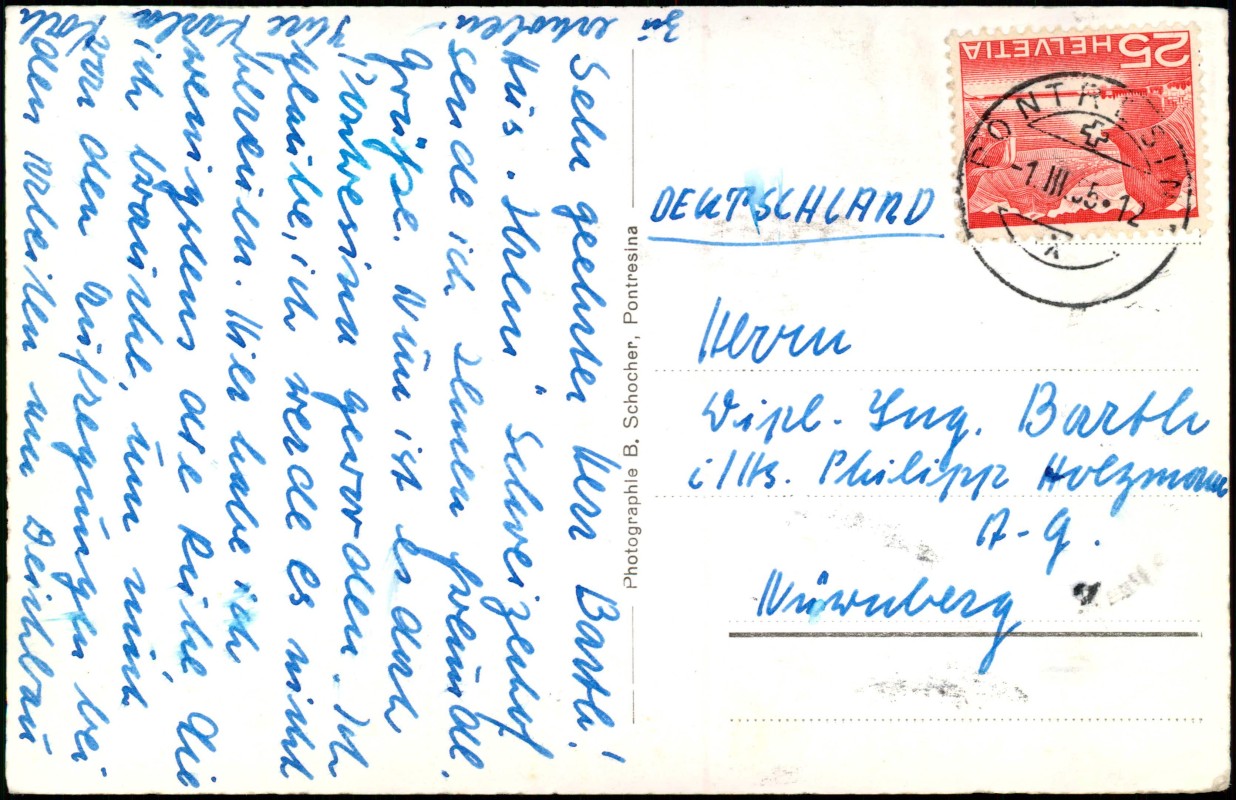 Sehr geehrter Herr Barth!
Aus "Ihrem" Schweizerhof
sende ich Ihnen freundl.
Grüße. Nun ist es doch
Pontresina geworden. Ich
glaube, ich werde es nicht
bereuen. Hier habe ich
wenigstens die Ruhe die
ich brauche, um mich
von den Aufregungen bei
den Arbeiten um
zu
erholen!
Ihre
Karla
Koch
Photographie B. Schocher, Pontresina
HELVETIA 25
PONTRESINA
-1.III.55.12
DEUTSCHLAND
Herrn
Dipl. Ing. Barth
i/Hs. Philipp Holzmann
A-G.
Nürnberg